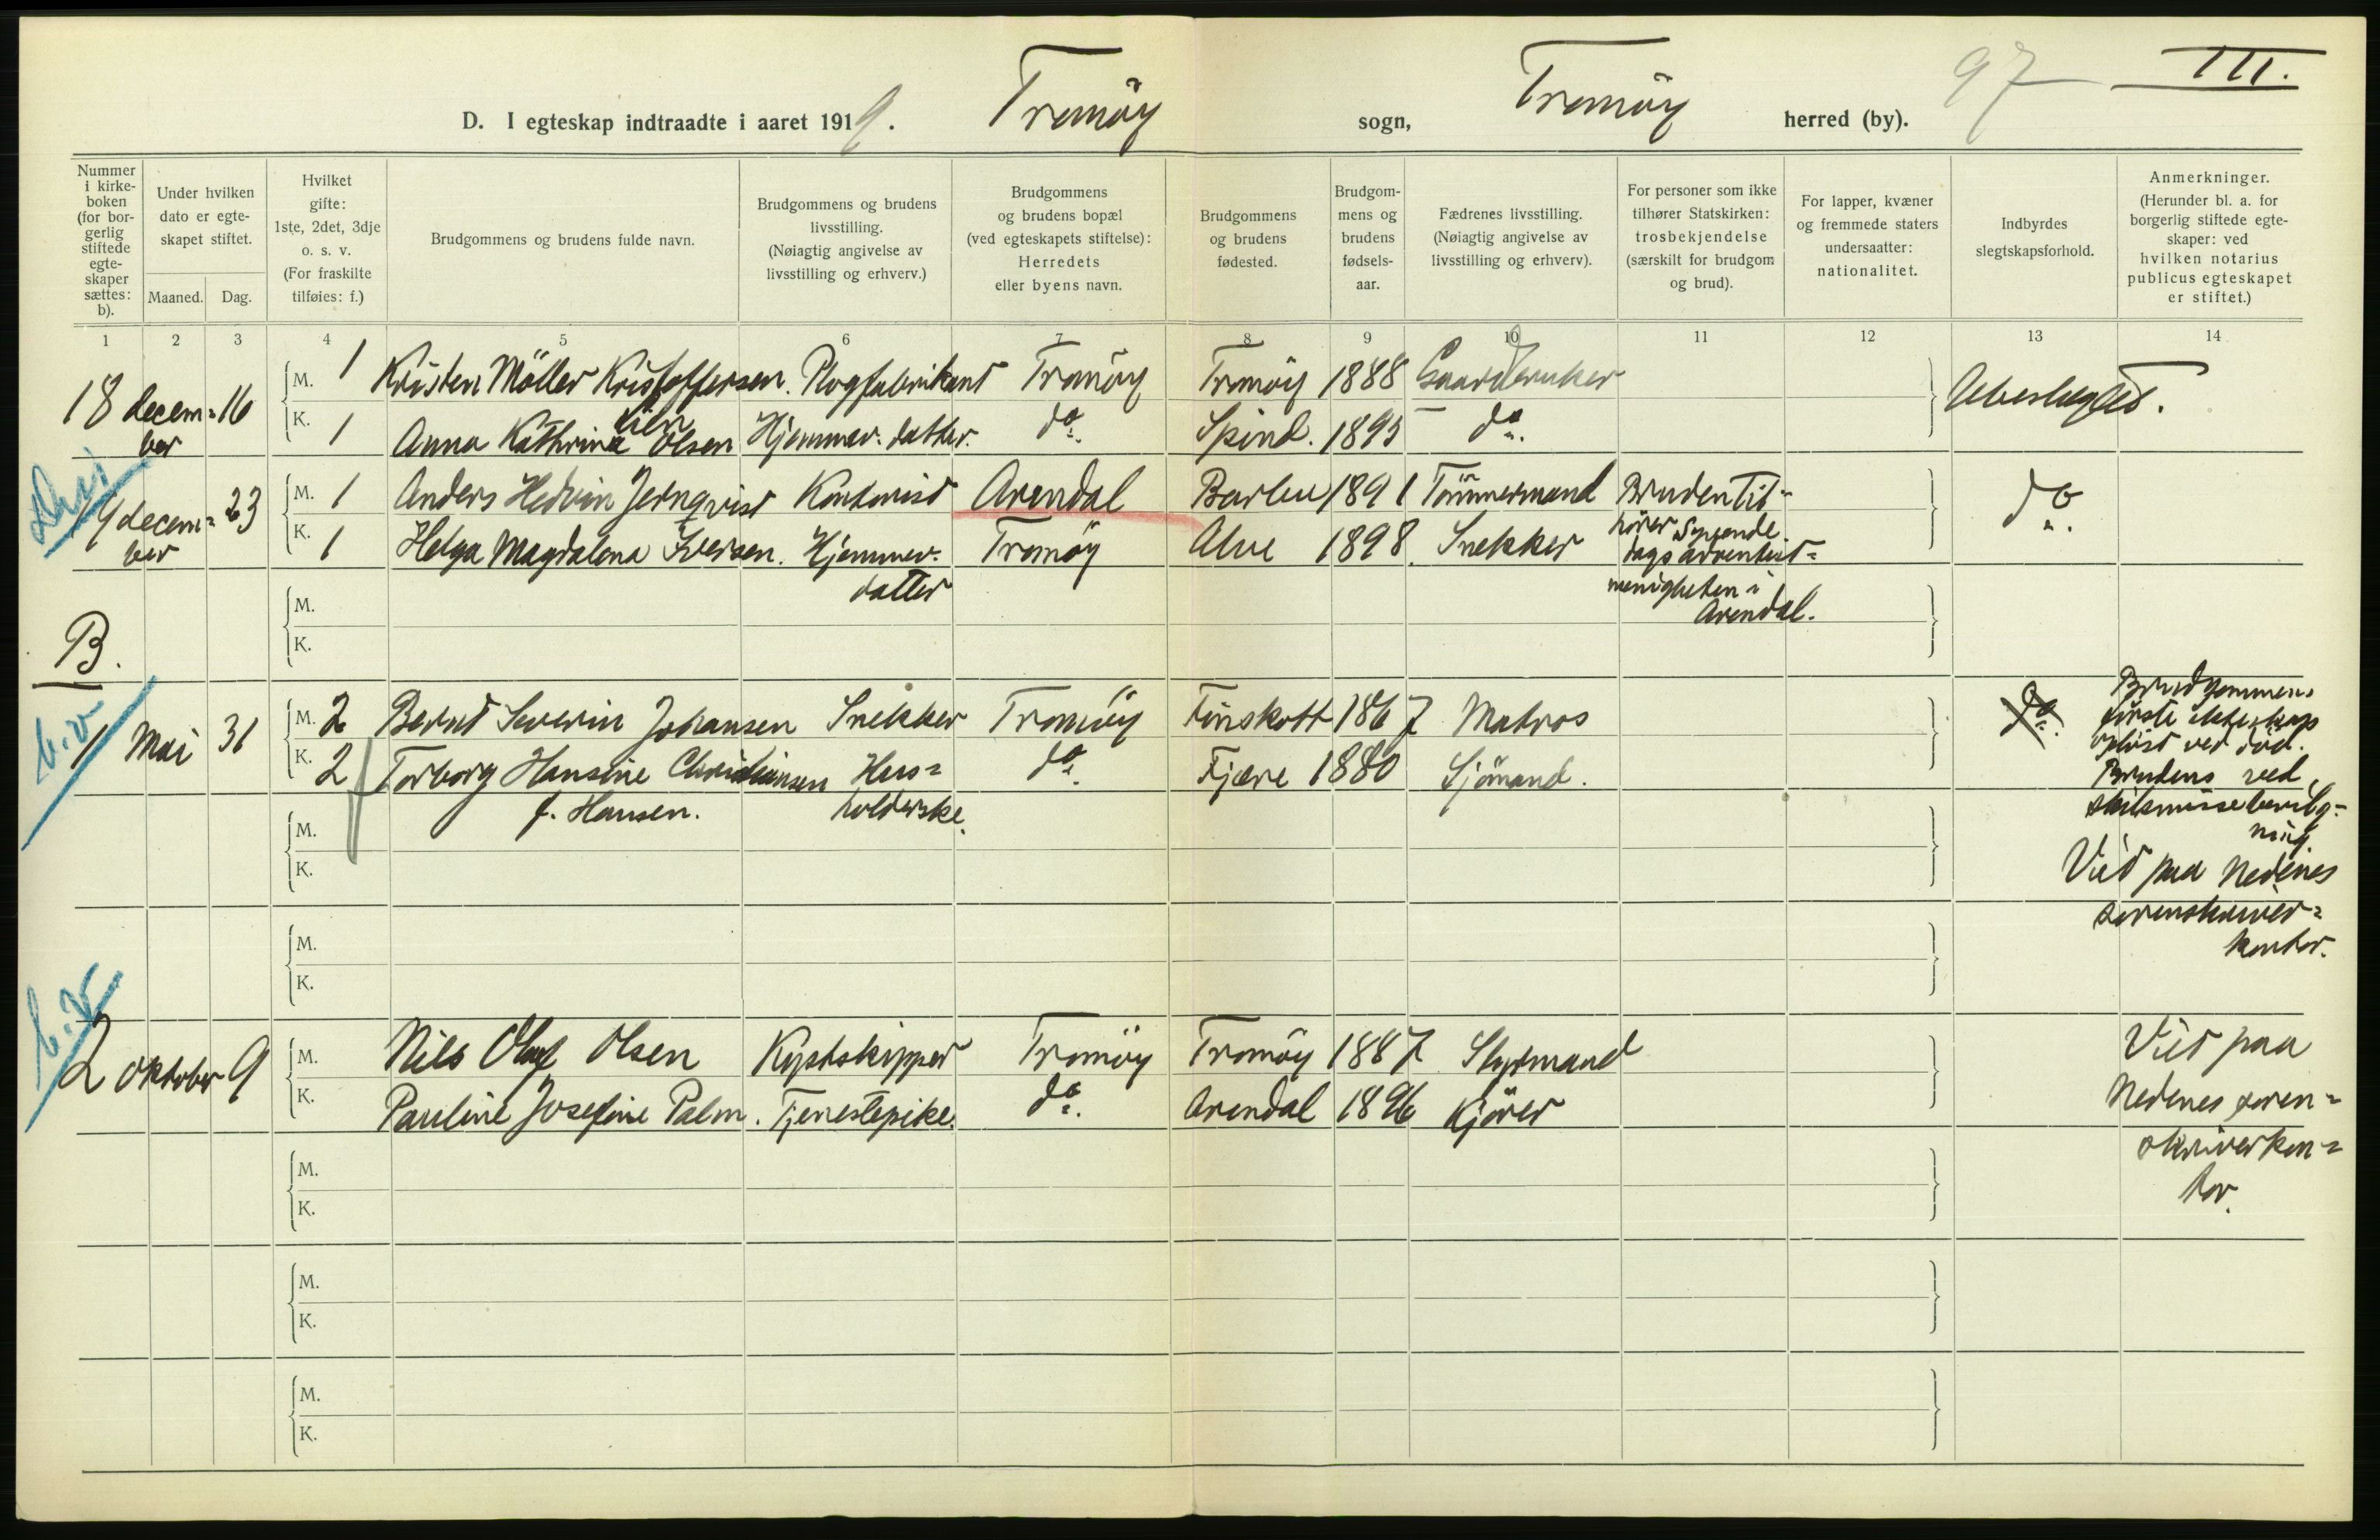 97 III.
D. I egteskap indtraadte i aaret 1919. Tromöy sogn, Tromöy herred (by).
Nummer i kirkeboken (for borgerlig stiftede egteskaper sættes: b).
Under hvilken dato er egteskapet stiftet.
Maaned. Dag.
Hvilket gifte: 1ste, 2det, 3dje o. s. v. (For fraskilte tilføies: f.)
Brudgommens og brudens fulde navn.
Brudgommens og brudens livsstilling. (Nøiagtig angivelse av livsstilling og erhverv.)
Brudgommens og brudens bopæl (ved egteskapets stiftelse): Herredets eller byens navn.
Brudgommens og brudens fødested.
Brudgommens og brudens fødselsaar.
Fædrenes livsstilling. (Nøiagtig angivelse av livsstilling og erhverv).
For personer som ikke tilhører Statskirken: trosbekjendelse (særskilt for brudgom og brud).
For lapper, kvæner og fremmede staters undersaatter: nationalitet.
Indbyrdes slegtskapsforhold.
Anmerkninger. (Herunder bl. a. for borgerlig stiftede egteskaper: ved hvilken notarius publicus egteskapet er stiftet.)
1 2 3 4 5 6 7 8 9 10 11 12 13 14
18 decem= 16 M. 1 Kristen Möller Kristoffersen. Plogfabrikant Tromöy Tromöy 1888 Gaardbruker Ubeslegtet.
ber K. 1 Anna Kathrine Olsen Hjemmev. datter. do. Spind. 1895 do.
decem= 23 M. 1 Anders Hedvin Jernqvist Kontorist Arendal Barbu 1891 Tömmermand Bruden til=
ber K. 1 Helga Magdalena Iversen. Hjemmev. Tromöy Alve 1898. Snekker hörer Syvende do.
datter
dags adventist=
menigheten i
Arendal.
M.
K.
B.
b.v
1 Mai 31 M. 2 Bernt Severin Johansen Snekker Tromöy Finskott 1867 Matros do.
K. 2 f Torborg Hansine Christiansen Hus= do. Fjære 1880 Sjömand.
f. Hansen. holderske.
Brudgommens
förste ekteskap
oplöst ved död.
Brudens ved
skilsmissebevilg=
ning
Viet paa Nedenes
sorenskriver=
kontor.
M.
K.
M.
K.
b.v
2 oktober 9 M. Nils Oluf Olsen Kystskipper Tromöy Tromöy 1887 Styrmand
K. Pauline Josefine Palm. Tjenestepike. do. Arendal 1896 Kjörer
Viet paa
Nedenes soren=
skriverkon=
tor.
M.
K.
M.
K.
M.
K.